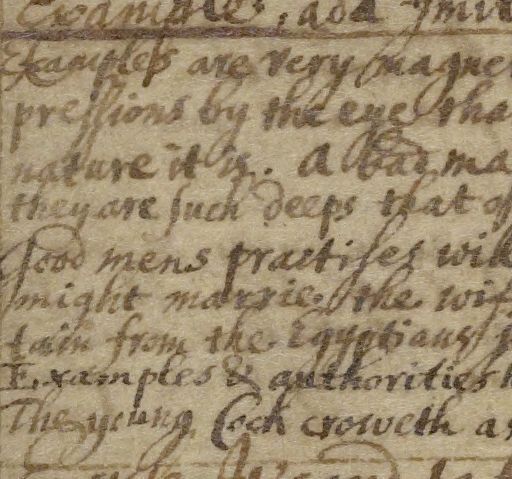 Example, and Imit
Examples are very magne
pressions by the eye tha
nature it is. A bad ma
they are such deeps that of
Good mens practises will
might marrie the wif
tain from the Egyptians
Examples & authorities h
The young Cock croweth as